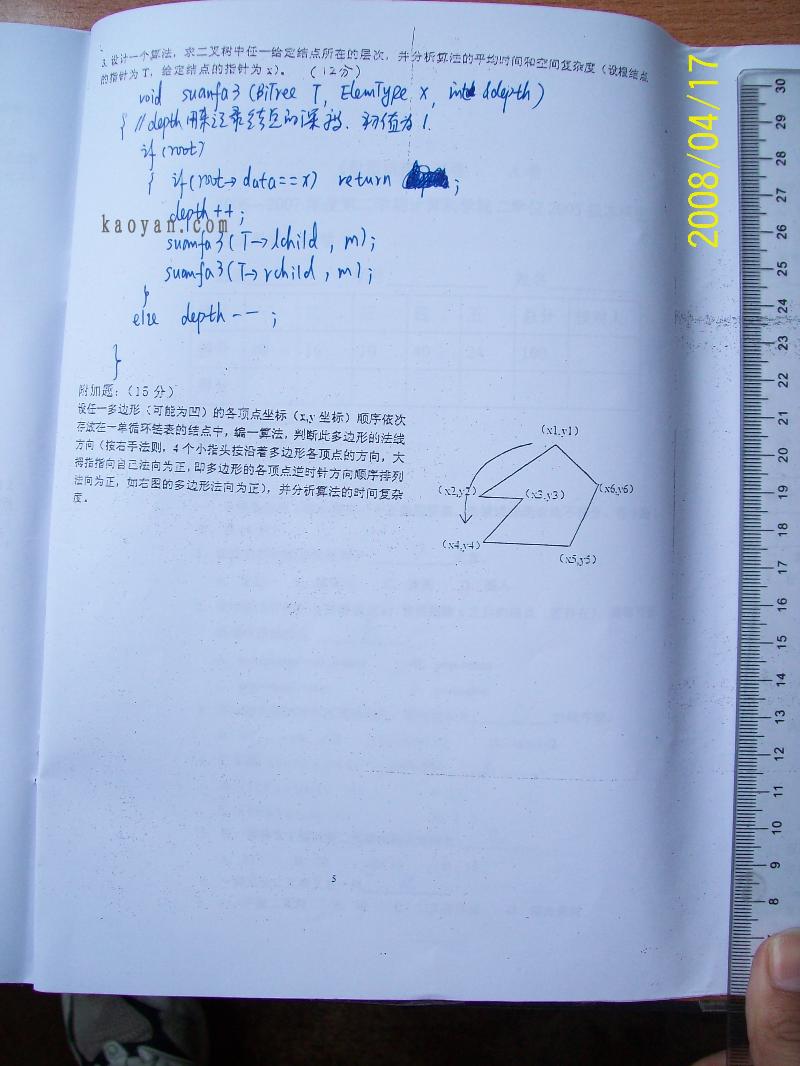 3. 设计一个算法，求二叉树中任一给定结点所在的层次，并分析算法的平均时间和空间复杂度（设根结点
的指针为 T，给定结点的指针为 x）。（12分）
void suanfa3 (BiTree T, ElemType x, int &depth)
{ //depth用来记录结点的深救. 初值为1.
if(root)
{ if(root→data==x) return ;
depth++;
kaoyan.com
suanfa3(T→lchild, m);
suanfa3(T→rchild, m);
}
else depth--;
}
附加题：（15分）
设任一多边形（可能为凹）的各顶点坐标（x,y 坐标）顺序依次
存放在一单循环链表的结点中，编一算法，判断此多边形的法线
方向（按右手法则，4 个小指头按沿着多边形各顶点的方向，大
拇指指向自己法向为正，即多边形的各顶点逆时针方向顺序排列
法向为正，如右图的多边形法向为正），并分析算法的时间复杂
度。
(x1,y1)
(x2,y2)
(x3,y3)
(x6,y6)
(x4,y4)
(x5,y5)
5
2008/04/17
30
29
28
27
26
25
24
23
22
21
20
19
18
17
16
15
14
13
12
11
10
9
8